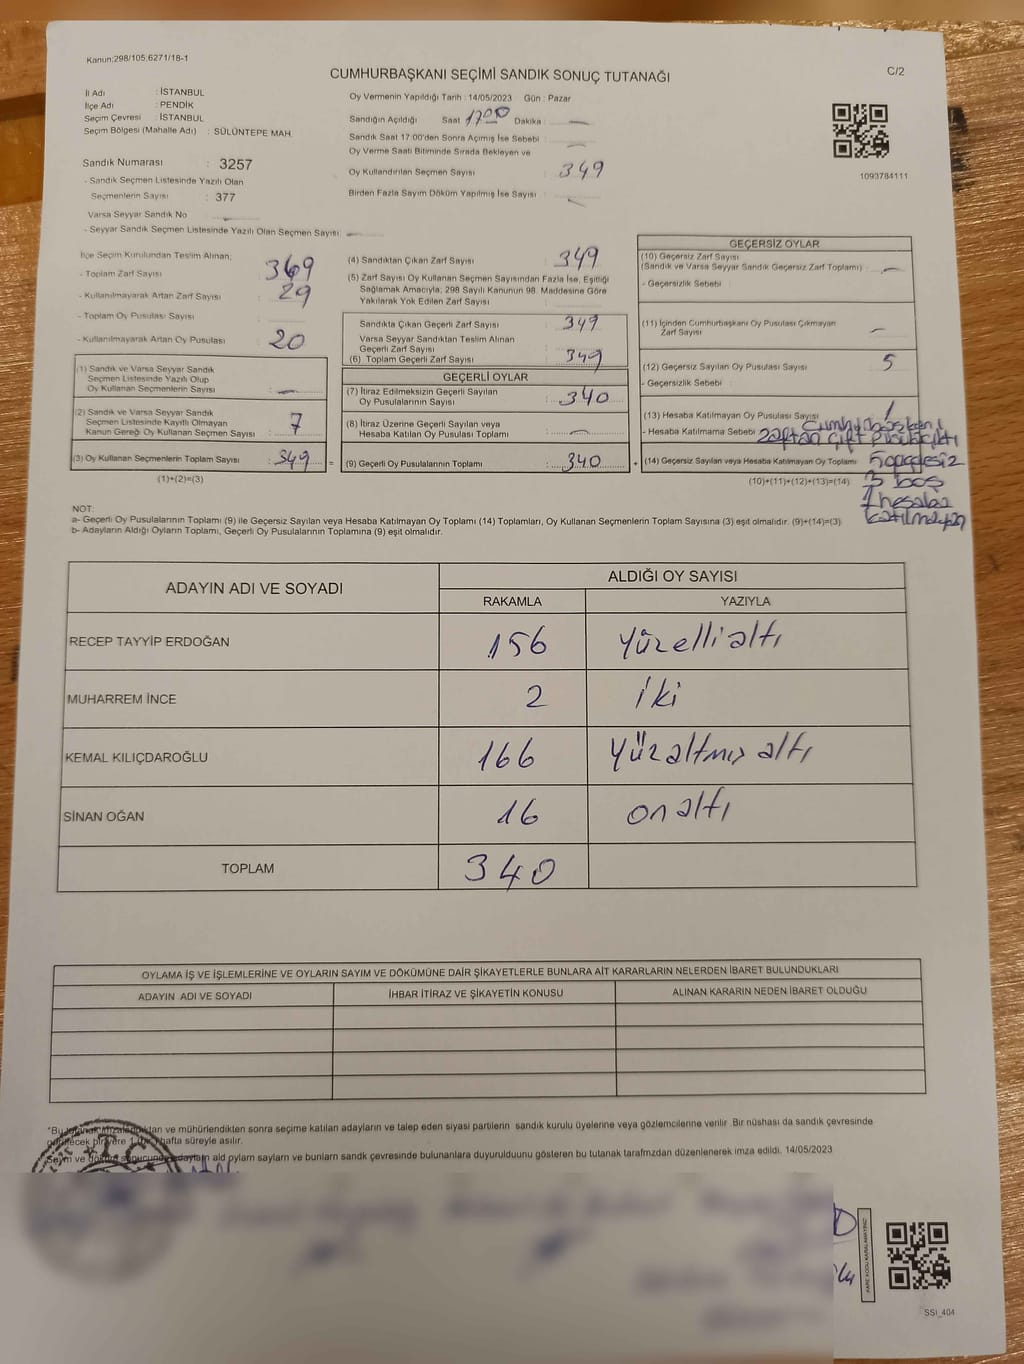 Kanun;298/105;6271/18-1
CUMHURBAŞKANI SEÇİMİ SANDIK SONUÇ TUTANAĞI
C/2
İl Adı : İSTANBUL
İlçe Adı : PENDİK
Seçim Çevresi : İSTANBUL
Seçim Bölgesi (Mahalle Adı) : SÜLÜNTEPE MAH.
Sandık Numarası : 3257
- Sandık Seçmen Listesinde Yazılı Olan
Seçmenlerin Sayısı : 377
Varsa Seyyar Sandık No
- Seyyar Sandık Seçmen Listesinde Yazılı Olan Seçmen Sayısı:
Oy Vermenin Yapıldığı Tarih : 14/05/2023 Gün : Pazar
Sandığın Açıldığı Saat 17:00 Dakika :
Sandık Saat 17.00'den Sonra Açımış İse Sebebi :
Oy Verme Saati Bitiminde Sırada Bekleyen ve
Oy Kullandırılan Seçmen Sayısı : 349
Birden Fazla Sayım Döküm Yapılmış İse Sayısı :
1093784111
İlçe Seçim Kurulundan Teslim Alınan;
- Toplam Zarf Sayısı : 369
- Kullanılmayarak Artan Zarf Sayısı : 29
- Toplam Oy Pusulası Sayısı :
- Kullanılmayarak Artan Oy Pusulası : 20
(1) Sandık ve Varsa Seyyar Sandık
Seçmen Listesinde Yazılı Olup
Oy Kullanan Seçmenlerin Sayısı :
(2) Sandık ve Varsa Seyyar Sandık
Seçmen Listesinde Kayıtlı Olmayan
Kanun Gereği Oy Kullanan Seçmen Sayısı : 7
(3) Oy Kullanan Seçmenlerin Toplam Sayısı : 349 =
(1)+(2)=(3)
(4) Sandıktan Çıkan Zarf Sayısı : 349
(5) Zarf Sayısı Oy Kullanan Seçmen Sayısından Fazla İse, Eşitliği
Sağlamak Amacıyla, 298 Sayılı Kanunun 98. Maddesine Göre
Yakılarak Yok Edilen Zarf Sayısı :
Sandıkta Çıkan Geçerli Zarf Sayısı : 349
Varsa Seyyar Sandıktan Teslim Alınan
Geçerli Zarf Sayısı :
(6) Toplam Geçerli Zarf Sayısı : 349
GEÇERLİ OYLAR
(7) İtiraz Edilmeksizin Geçerli Sayılan
Oy Pusulalarının Sayısı : 340
(8) İtiraz Üzerine Geçerli Sayılan veya
Hesaba Katılan Oy Pusulası Toplamı :
(9) Geçerli Oy Pusulalarının Toplamı : 340 +
GEÇERSİZ OYLAR
(10) Geçersiz Zarf Sayısı
(Sandık ve Varsa Seyyar Sandık Geçersiz Zarf Toplamı) :
- Geçersizlik Sebebi :
(11) İçinden Cumhurbaşkanı Oy Pusulası Çıkmayan
Zarf Sayısı :
(12) Geçersiz Sayılan Oy Pusulası Sayısı : 5
- Geçersizlik Sebebi :
(13) Hesaba Katılmayan Oy Pusulası Sayısı : 1
- Hesaba Katılmama Sebebi : Cumhurbaşkanı
zaftan çift pusula çıktı
(14) Geçersiz Sayılan veya Hesaba Katılmayan Oy Toplamı : 5 geçersiz
(10)+(11)+(12)+(13)=(14)
3 boş
1 hesaba
katılmayan
NOT:
a- Geçerli Oy Pusulalarının Toplamı (9) ile Geçersiz Sayılan veya Hesaba Katılmayan Oy Toplamı (14) Toplamları, Oy Kullanan Seçmenlerin Toplam Sayısına (3) eşit olmalıdır. (9)+(14)=(3)
b- Adayların Aldığı Oyların Toplamı, Geçerli Oy Pusulalarının Toplamına (9) eşit olmalıdır.
ADAYIN ADI VE SOYADI
ALDIĞI OY SAYISI
RAKAMLA YAZIYLA
RECEP TAYYİP ERDOĞAN 156 Yüzellialtı
MUHARREM İNCE 2 iki
KEMAL KILIÇDAROĞLU 166 Yüzaltmış altı
SİNAN OĞAN 16 on altı
TOPLAM 340
OYLAMA İŞ VE İŞLEMLERİNE VE OYLARIN SAYIM VE DÖKÜMÜNE DAİR ŞİKAYETLERLE BUNLARA AİT KARARLARIN NELERDEN İBARET BULUNDUKLARI
ADAYIN ADI VE SOYADI İHBAR İTİRAZ VE ŞİKAYETİN KONUSU ALINAN KARARIN NEDEN İBARET OLDUĞU
*Bu ve mühürlendikten sonra seçime katılan adayların ve talep eden siyasi partilerin sandık kurulu üyelerine veya gözlemcilerine verilir. Bir nüshası da sandık çevresinde
hafta süreyle asılır.
Sayım ve ald oyların sayların ve bunların sandk çevresinde bulunanlara duyurulduunu gösteren bu tutanak tarafmzdan düzenlenerek imza edildi. 14/05/2023
KARE KODU KARALAMAYINIZ
SSI_404